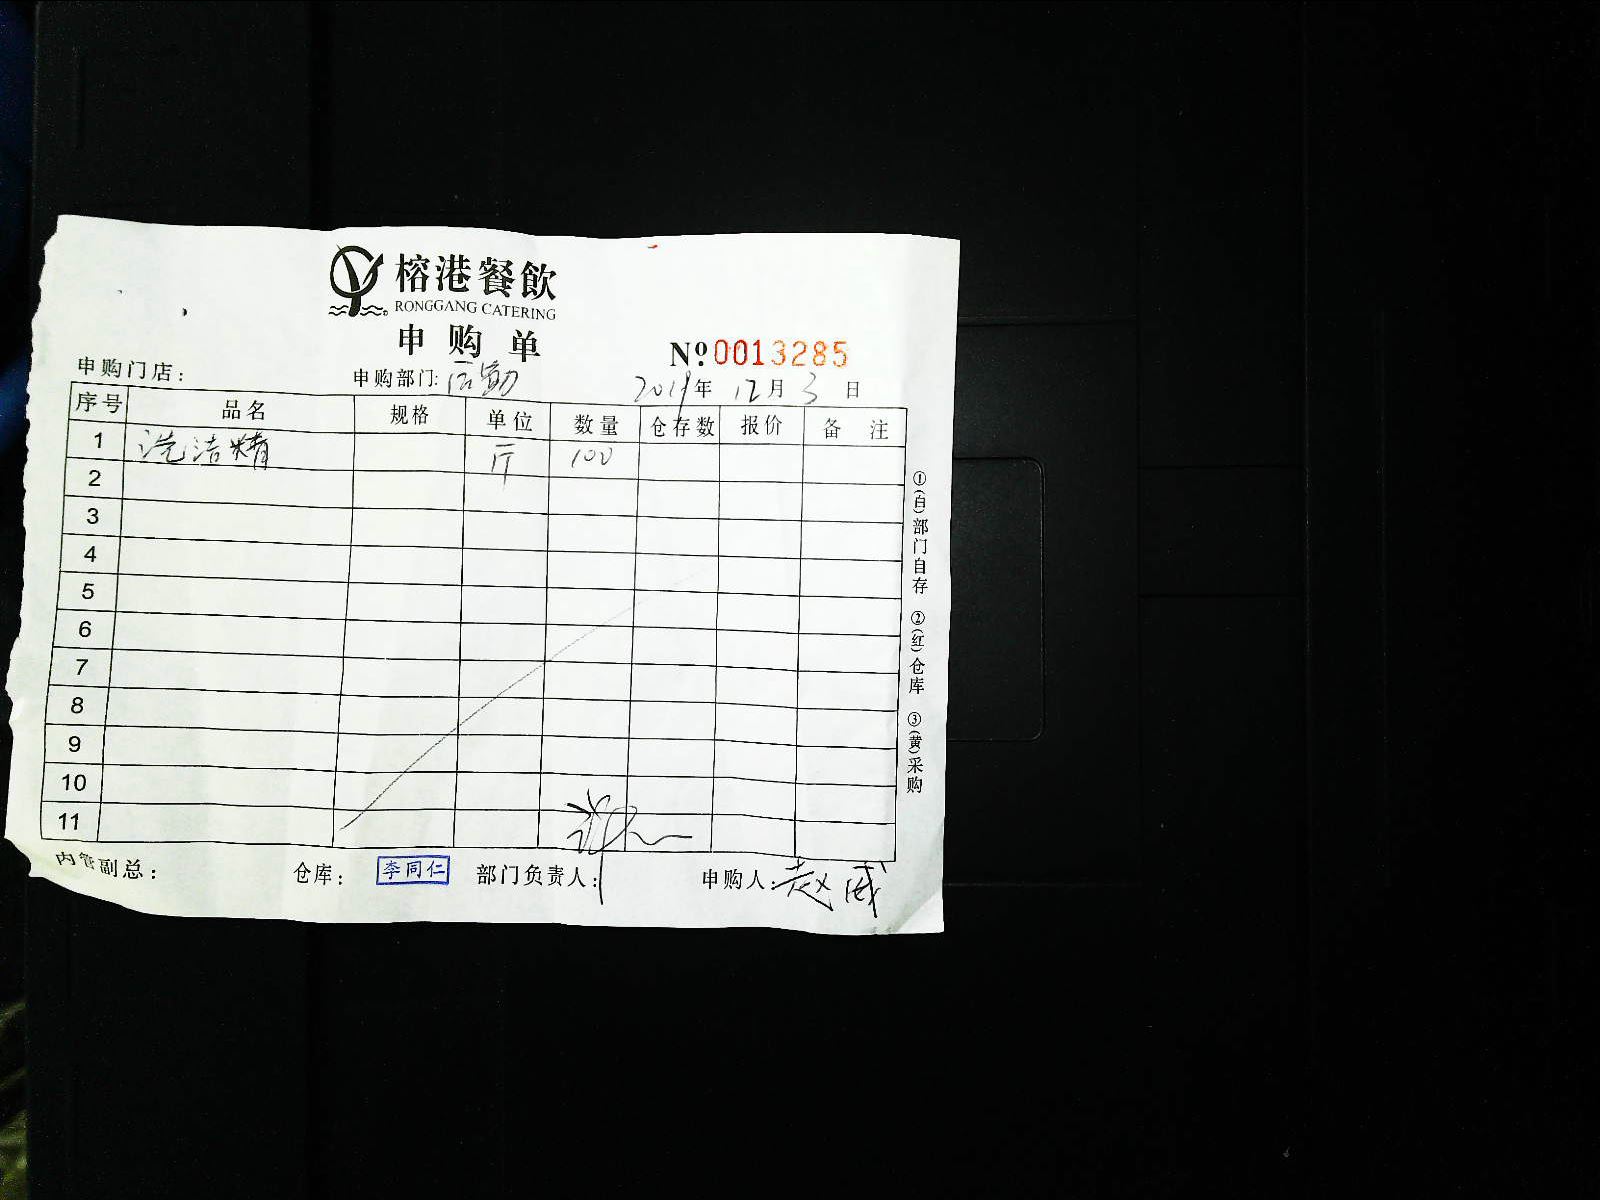 榕港餐飲
RONGGANG CATERING
申购单
№0013285
申购门店： 申购部门：后勤 2019年12月3日
序号 品名 规格 单位 数量 仓存数 报价 备 注
1 洗洁精 斤 100
2
3
4
5
6
7
8
9
10
11
内管副总： 仓库： 李同仁 部门负责人： 申购人：赵威
①(白)部门自存 ②(红)仓库 ③(黄)采购